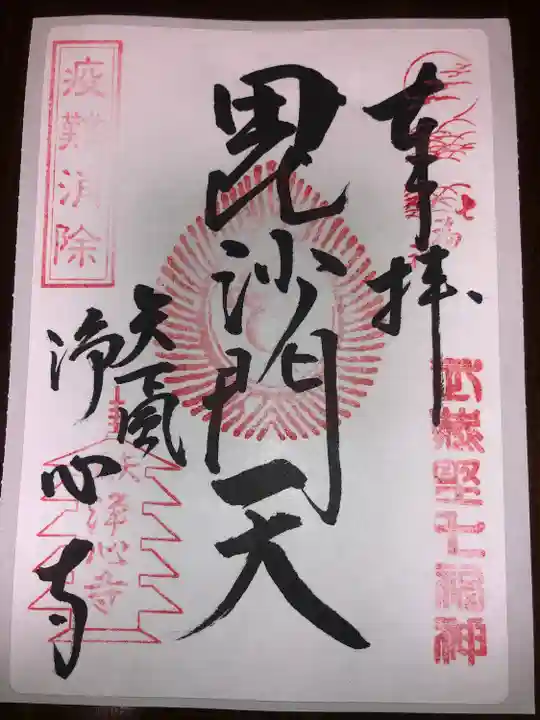 奉拝
武蔵野七福神
毘沙門天
矢颪
浄心寺
浄心寺
疫難消除